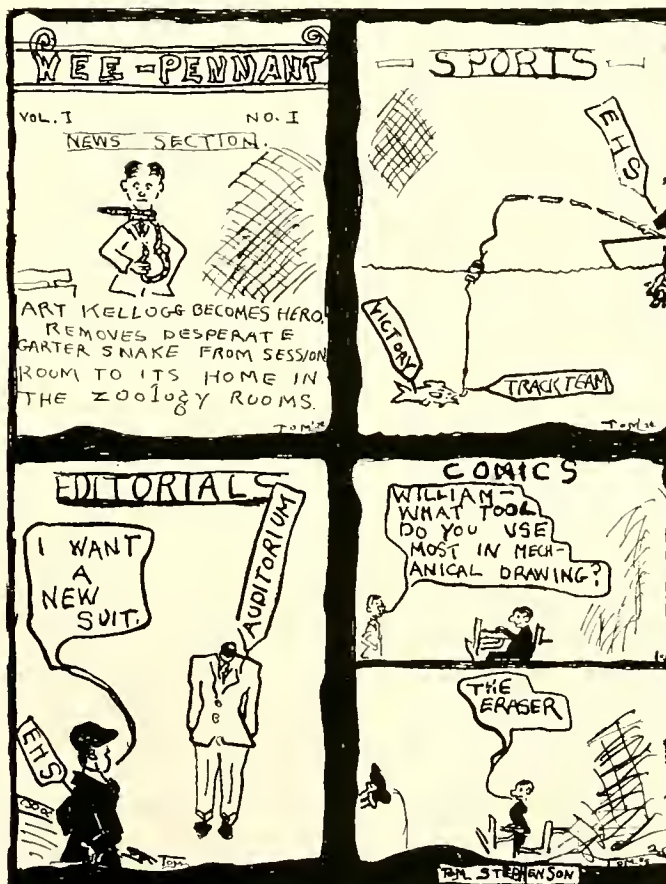 WEE-PENNANT
VOL. I NO. I
NEWS SECTION.
ART KELLOGG BECOMES HERO,
REMOVES DESPERATE
GARTER SNAKE FROM SESSION
ROOM TO ITS HOME IN
THE ZOOlOgy ROOMS.
TOM
SPORTS
EHS
VICTORY
TRACK TEAM
TOM
EDITORIALS
I WANT
A
NEW
SUIT.
AUDITORIUM
EHS
TOM
COMICS
WILLIAM-
WHAT TOOL
DO YOU USE
MOST IN MECH-
ANICAL DRAWING?
THE
ERASER
TOM
TOM STEPHENSON